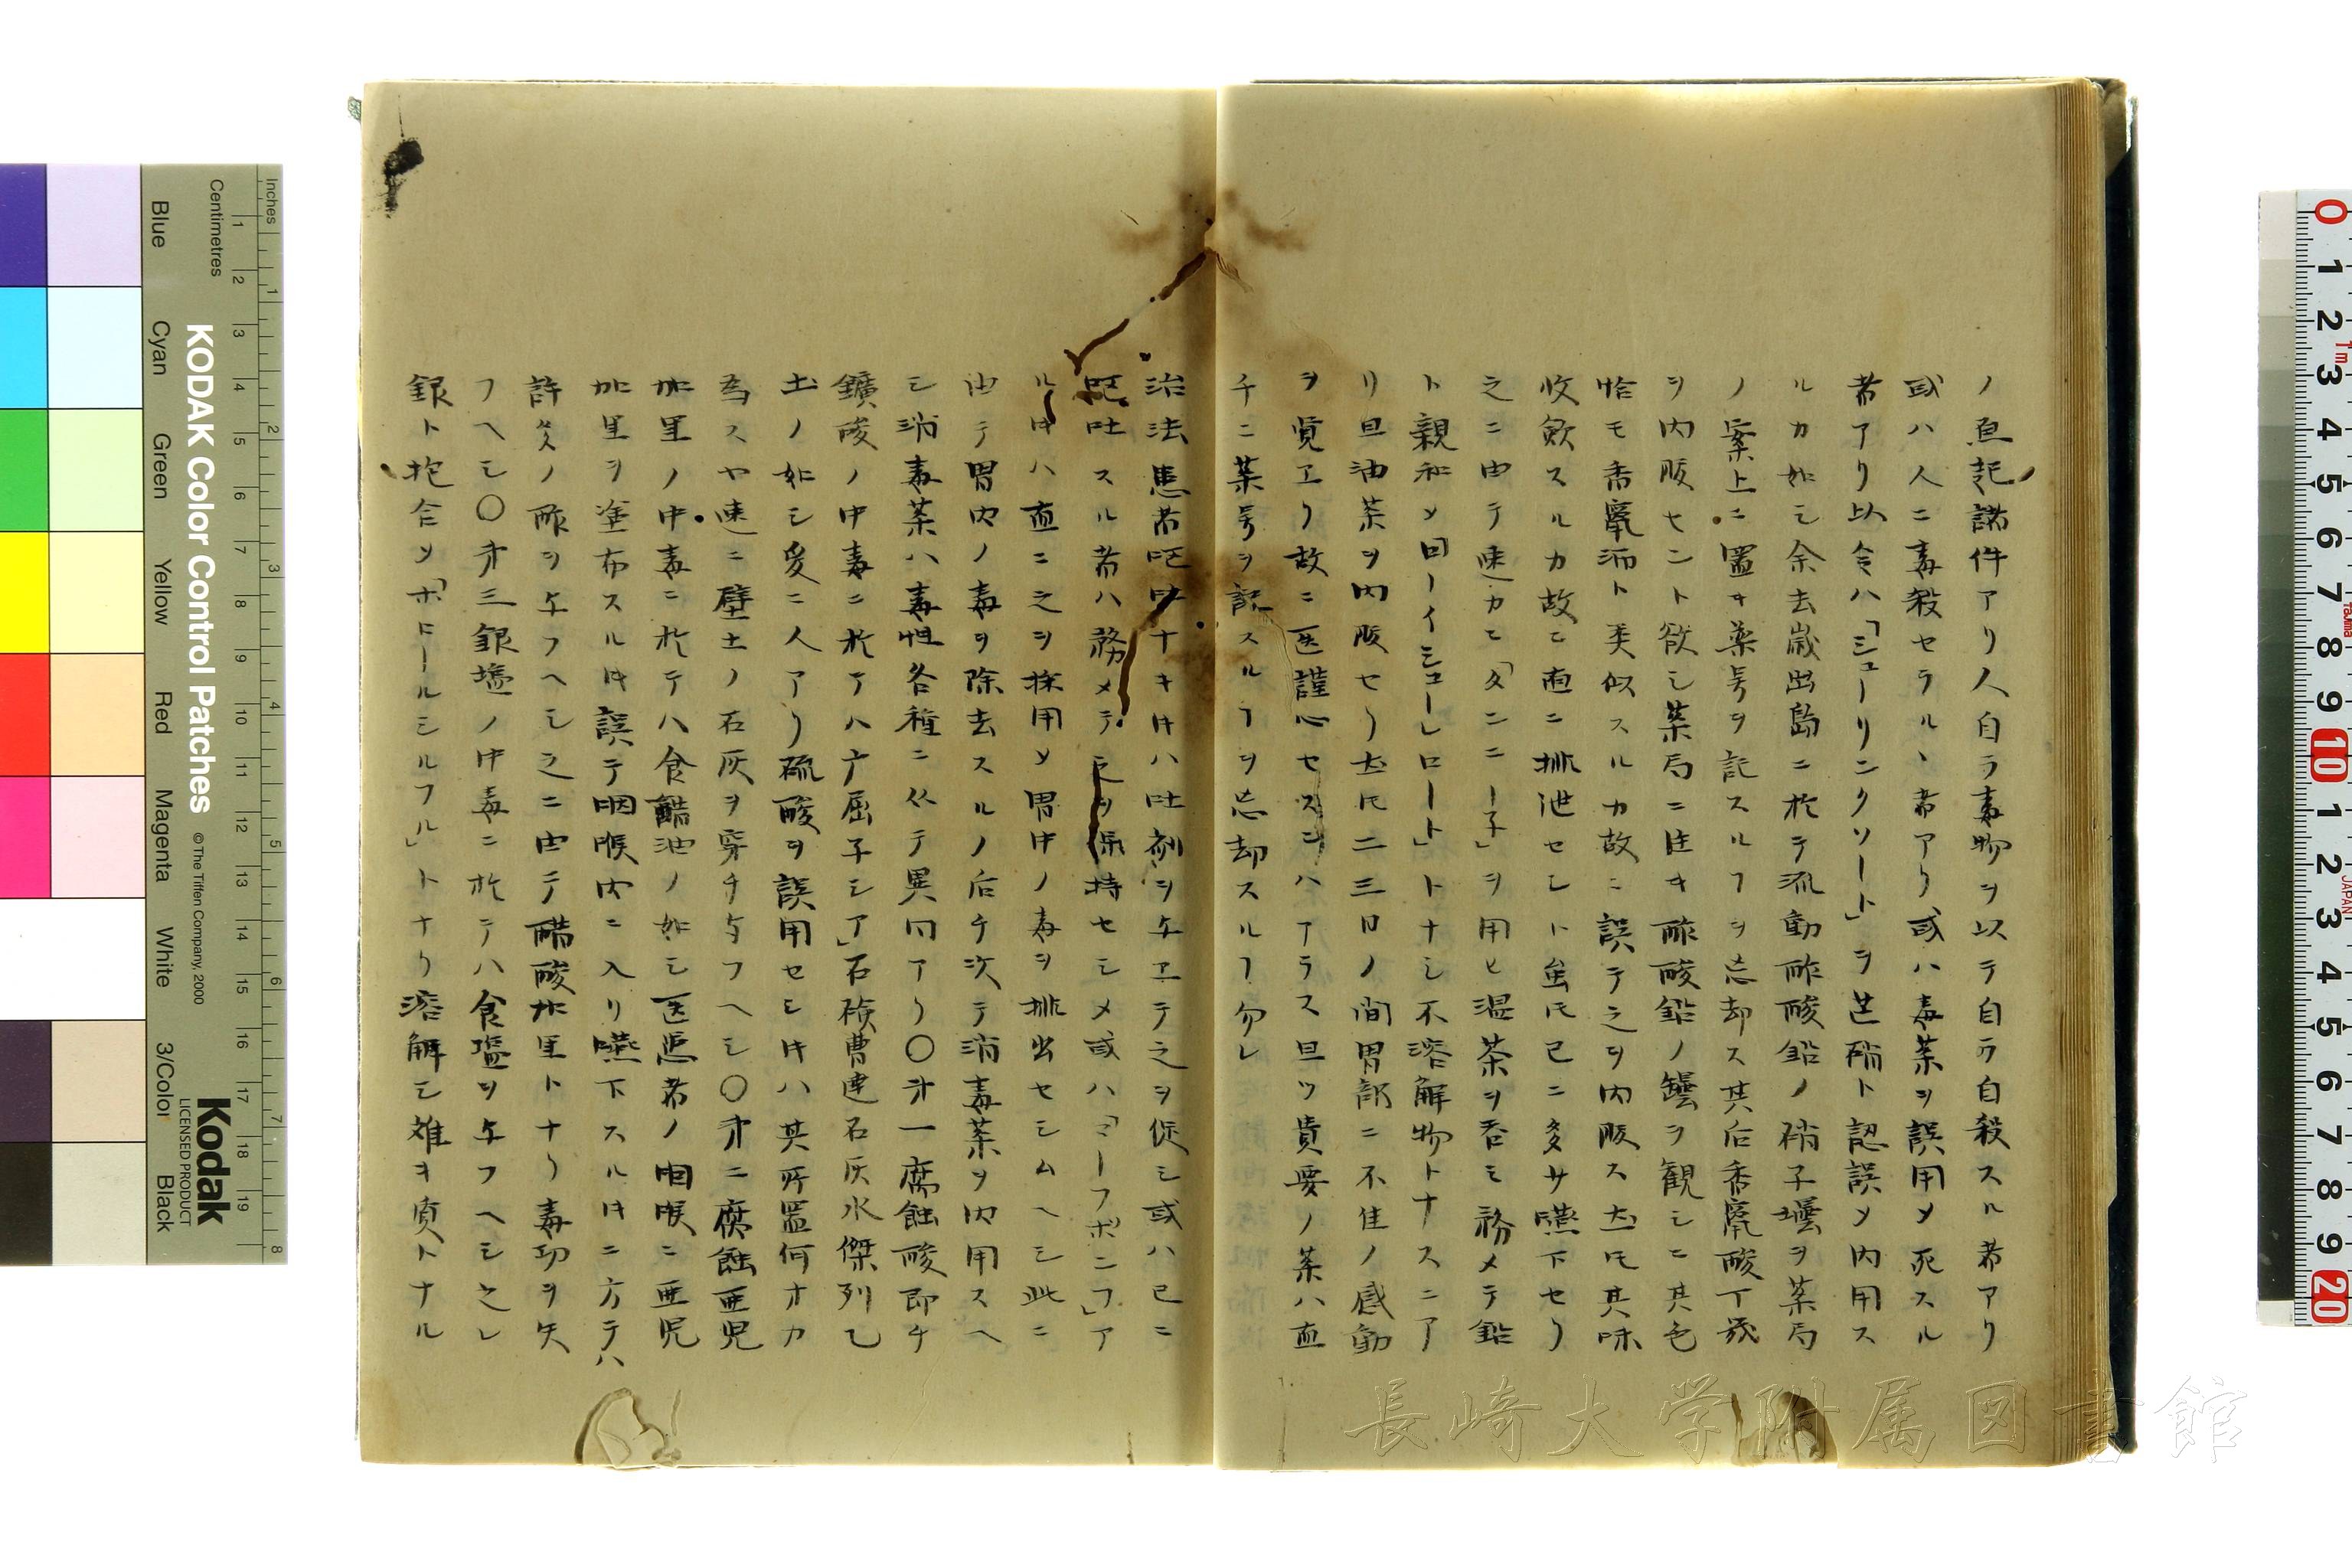 ノ亘記諸件アリ人自ラ毒物ヲ以テ自ラ自殺スル者アリ
或ハ人ニ毒殺セラルヽ者アリ或ハ毒薬ヲ誤用メ死スル
者アリ以令ハ「シューリンクソート」ヲ芒硝ト認誤メ内用ス
ルカ如シ余去歳出島ニ於テ流動酢酸鉛ノ硝子壜ヲ薬局
ノ案上ニ置キ薬号ヲ記スルヿヲ忘却ス其后
ヲ内服セント欲シ薬局ニ往キ酢酸鉛ノ罎ヲ観シニ其色
恰モ 沛ト类似スルカ故ニ誤テ之ヲ内服ス𪜈其味
收斂スルカ故ニ直ニ排泄セシト虽𪜈已ニ多サ嚥下セリ
之ニ由テ速カニ「タンニー子」ヲ用ヒ温茶ヲ呑ミ務メテ鉛
ト親和メ「ローイシューレロート」トナシ不溶解物トナスニア
リ且油薬ヲ内服セリ𪜈二三日ノ間胃部ニ不佳ノ感動
ヲ覚エリ故ニ医謹心セスンハアラス且ツ貴要ノ薬ハ直
チニ薬号ヲ記スルヿヲ忘却スルヿ勿レ
治法患者嘔吐ナキ𪜈ハ吐剤ヲ与エテ之ヲ促シ或ハ已ニ
嘔吐スル者ハ務メテ 之ヲ保持セシメ或ハ「ミーフポンフ」ア
ルキハ直ニ之ヲ採用メ胃中ノ毒ヲ排出セシムヘシ此ニ
由テ胃内ノ毒ヲ除去スルノ后チ次テ消毒薬ヲ内用スヘ
シ消毒薬ハ毒性各種ニ从テ異同アリ〇第一腐蝕酸即チ
鑛酸ノ中毒ニ於テハ广屈子シア」石 曹達石灰水傑列乙
土ノ如シ爰ニ人アリ硫酸ヲ誤用セシキハ其所置何オカ
為スヤ速ニ壁土ノ石灰ヲ穿チ与フヘシ〇第二腐蝕亜児
加里ノ中毒ニ於テハ食醋油ノ如シ医患者ノ咽喉ニ亜児
加里ヲ塗布スルキ誤テ咽喉内ニ入リ嚥下スルキニ方テハ
許多ノ酢ヲ与フヘシ之ニ由テ醋酸加里トナリ毒功ヲ失
フヘシ〇第三銀塩ノ中毒ニ於テハ食塩ヲ与フヘシ之レ
銀ト抱合メ「ホトールシルフル」トナリ溶解シ雄キ質トナル
Blue
Cyan
Green
Yellow
Red
Magenta
White
3/Color
Black
Inches
Centimetres
KODAK Color Control Patches
© The Tiffen Company, 2000
Kodak
LICENSED PRODUCT
JAPAN
長崎大学附属図書館